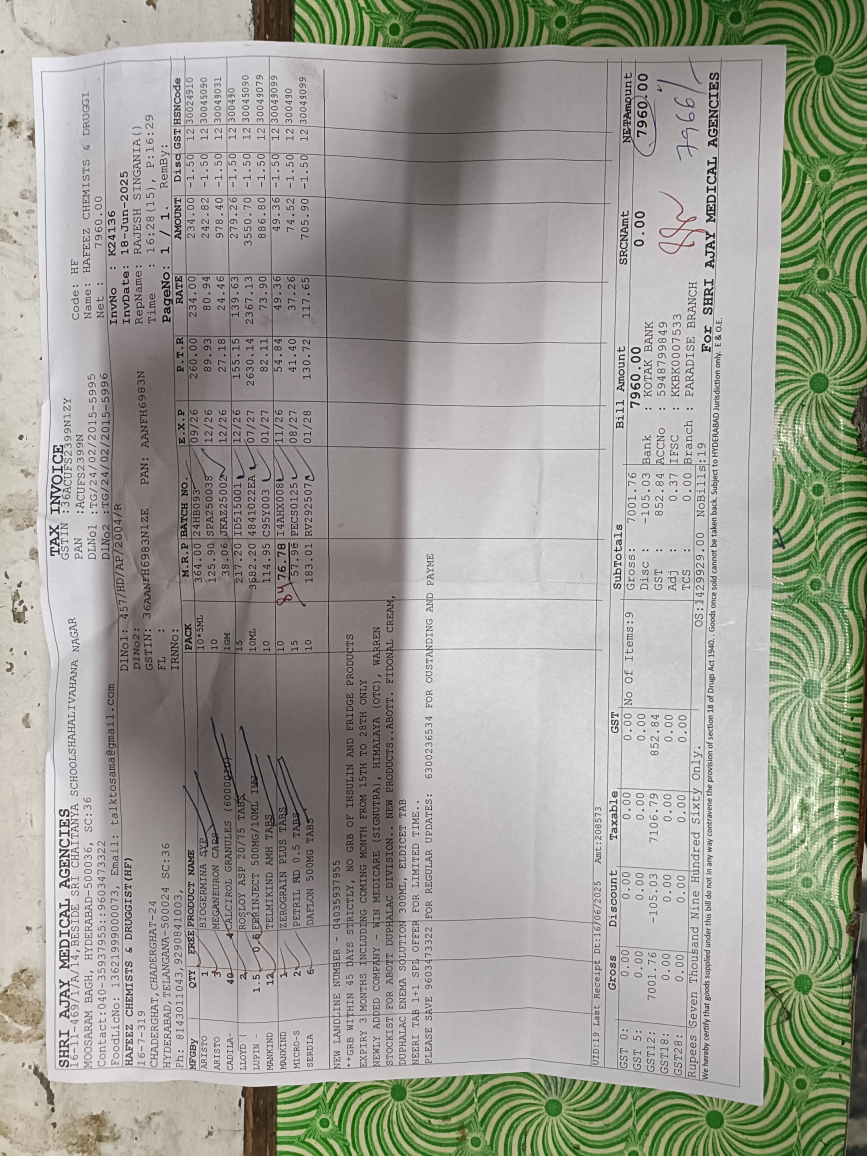 TAX INVOICE
SHRI AJAY MEDICAL AGENCIES
16-11-469/1/A/14,BESIDE SRI CHAITANYA SCHOOLSHAHALIVAHANA NAGAR
MOOSARAM BAGH, HYDERABAD-500036, SC:36
Contact:040-35937955::9603473322
FoodLicNo: 13621999000073, Email: talktosama@gmail.com
GSTIN :36ACUFS2399N1ZY
PAN :ACUFS2399N
DLNo1 :TG/24/02/2015-5995
DLNo2 :TG/24/02/2015-5996
Code: HF
Name: HAFEEZ CHEMISTS & DRUGGI
Net : 7960.00
HAFEEZ CHEMISTS & DRUGGIST(HF)
16-7-319
CHADERGHAT, CHADERGHAT-24
HYDERABAD,TELANGANA-500024 SC:36
Ph: 8143011043,9290841003,
DlNo1: 457/HD/AP/2004/R
DlNo2:
GSTIN: 36AANFH6983N1ZE PAN: AANFH6983N
FL :
IRNNo:
InvNo : K24136
InvDate: 18-Jun-2025
RepName: RAJESH SINGANIA()
Time : 16:28(15), P:16:29
PageNo: 1 / 1. RemBy:
MFGBy QTY FREE PRODUCT NAME PACK M.R.P BATCH NO. E.X.P P.T.R RATE AMOUNT Disc GST HSNCode
ARISTO 1 BIOGERMINA SYP 10*5ML 364.00 24HB0934 09/26 260.00 234.00 234.00 -1.50 12 30024910
ARISTO 3 MEGANEURON CAPS 10 125.90 SPA250038 12/26 89.93 80.94 242.82 -1.50 12 30045090
CADILA- 40 CALCIROL GRANULES 1GM 38.06 JKAE25002 12/26 27.18 24.46 978.40 -1.50 12 30049031
LLOYD ( 2 ROSLOY ASP 20/75 TABS 15 217.20 ID515001 12/26 155.15 139.63 279.26 -1.50 12 300490
LUPIN - 1.5 FERINJECT 500MG/10ML INJ 10ML 3682.20 4841022EA 07/27 2630.14 2367.13 3550.70 -1.50 12 30045090
MANKIND 12 TELMIKIND AMH TABS 10 114.95 C95Y003 01/27 82.11 73.90 886.80 -1.50 12 30049079
MANKIND 1 ZEROGRAIN PLUS TABS 10 84 76.78 I4AHX008 11/26 54.84 49.36 49.36 -1.50 12 30049099
MICRO-S 2 PETRIL MD 0.5 TABS 15 57.96 PECS0125 08/27 41.40 37.26 74.52 -1.50 12 300490
SERDIA 6 DAFLON 500MG TABS 10 183.01 RV292507 01/28 130.72 117.65 705.90 -1.50 12 30049099
NEW LANDLINE NUMBER - 04035937955
**GRB WITHIN 45 DAYS STRICTLY, NO GRB OF INSULIN AND FRIDGE PRODUCTS
EXPIRY 3 MONTHS INCLUDING COMING MONTH FROM 15TH TO 28TH ONLY
NEWLY ADDED COMPANY - WIN MEDICARE (SIGNUTRA), HIMALAYA (OTC), WARREN
STOCKIST FOR ABOTT DUPHALAC DIVISION.. NEW PRODUCTS..ABOTT. FIDONAL CREAM,
DUPHALAC ENEMA SOLUTION 300ML, ELDICET TAB
NEERI TAB 1+1 SPL OFFER FOR LIMITED TIME..
PLEASE SAVE 9603473322 FOR REGULAR UPDATES: 6300236534 FOR OUSTANDING AND PAYME
UID:19 Last Receipt Dt:16/06/2025 Amt:208573
Gross Discount Taxable GST
GST 0: 0.00 0.00 0.00 0.00
GST 5: 0.00 0.00 0.00 0.00
GST12: 7001.76 -105.03 7106.79 852.84
GST18: 0.00 0.00 0.00 0.00
GST28: 0.00 0.00 0.00 0.00
No Of Items:9
SubTotals
Gross: 7001.76
Disc : -105.03
GST : 852.84
Adj : 0.37
TCS : 0.00
Bill Amount SRCNAmt NETAmount
7960.00 0.00 7960.00
Bank : KOTAK BANK
ACCNo : 5948799849
IFSC : KKBK0007533
Branch : PARADISE BRANCH
7966/-
Rupees Seven Thousand Nine Hundred Sixty Only. OS:1429929.00 NoBills:19
For SHRI AJAY MEDICAL AGENCIES
We hereby certify that goods supplied under this bill do not in any way contravene the provision of section 18 of Drugs Act 1940.. Goods once sold cannot be taken back. Subject to HYDERABAD Jurisdiction only. E & O.E.